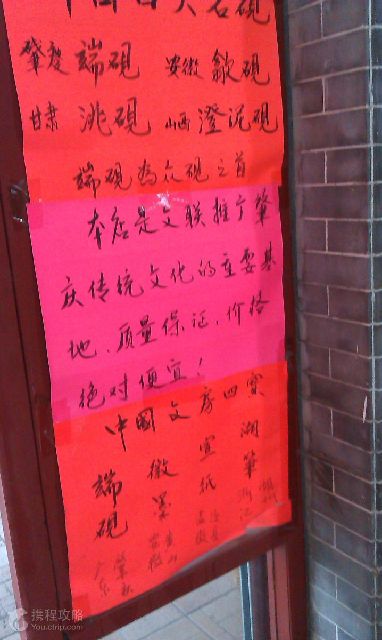 四大名硯
肇慶端硯 安徽歙硯
甘肃洮硯 山西澄泥硯
端硯為众硯之首
本店是文联推广肇
庆传统文化的重要基
地、质量保证、价格
绝对便宜！
中國文房四寶
端硯 广东肇庆
徽墨 安徽黄山
宣紙 安徽
湖筆 浙江湖州
携程攻略
You.ctrip.com